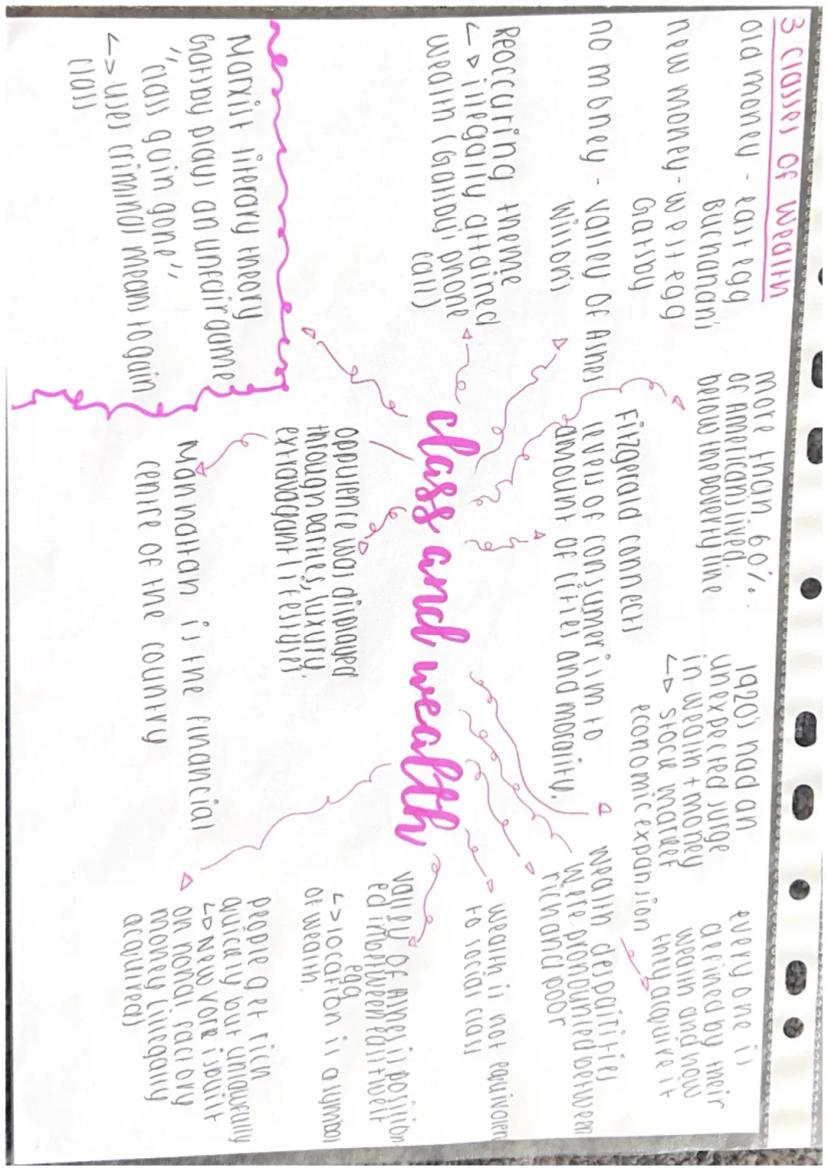 3 classes of wealth
old money - east egg
Buchanans
new money - west egg
Gatsby
no money - valley of Ashes
Wilsons
Reoccuring theme
↳ illegally attained
wealth (Gatsbys phone
call)
Marxist literary theory
Gatsby plays an unfair game
"class gain gone"
↳ uses criminal means to gain
class
more than 60%.
of Americans lived
below the poverty line
Fitzgerald connects
levels of consumerism to
amount of cities and morality.
class and wealth
oppulence was displayed
through parties, luxury,
extravagant lifestyles
Manhattan is the financial
centre of the country
1920's had an
unexpected surge
in wealth + money
↳ stock market
economic expansion
every one is
defined by their
wealth and how
they acquire it
wealth despairities
were pronounced between
rich and poor
wealth is not equivalen
to social class
valley of Ashes is position
ed inbetween east west
egg
↳ location is a symbol
of wealth.
people get rich
quickly but unlawfully
↳ New York is built
on nonol factory
money (illegally
acquired)